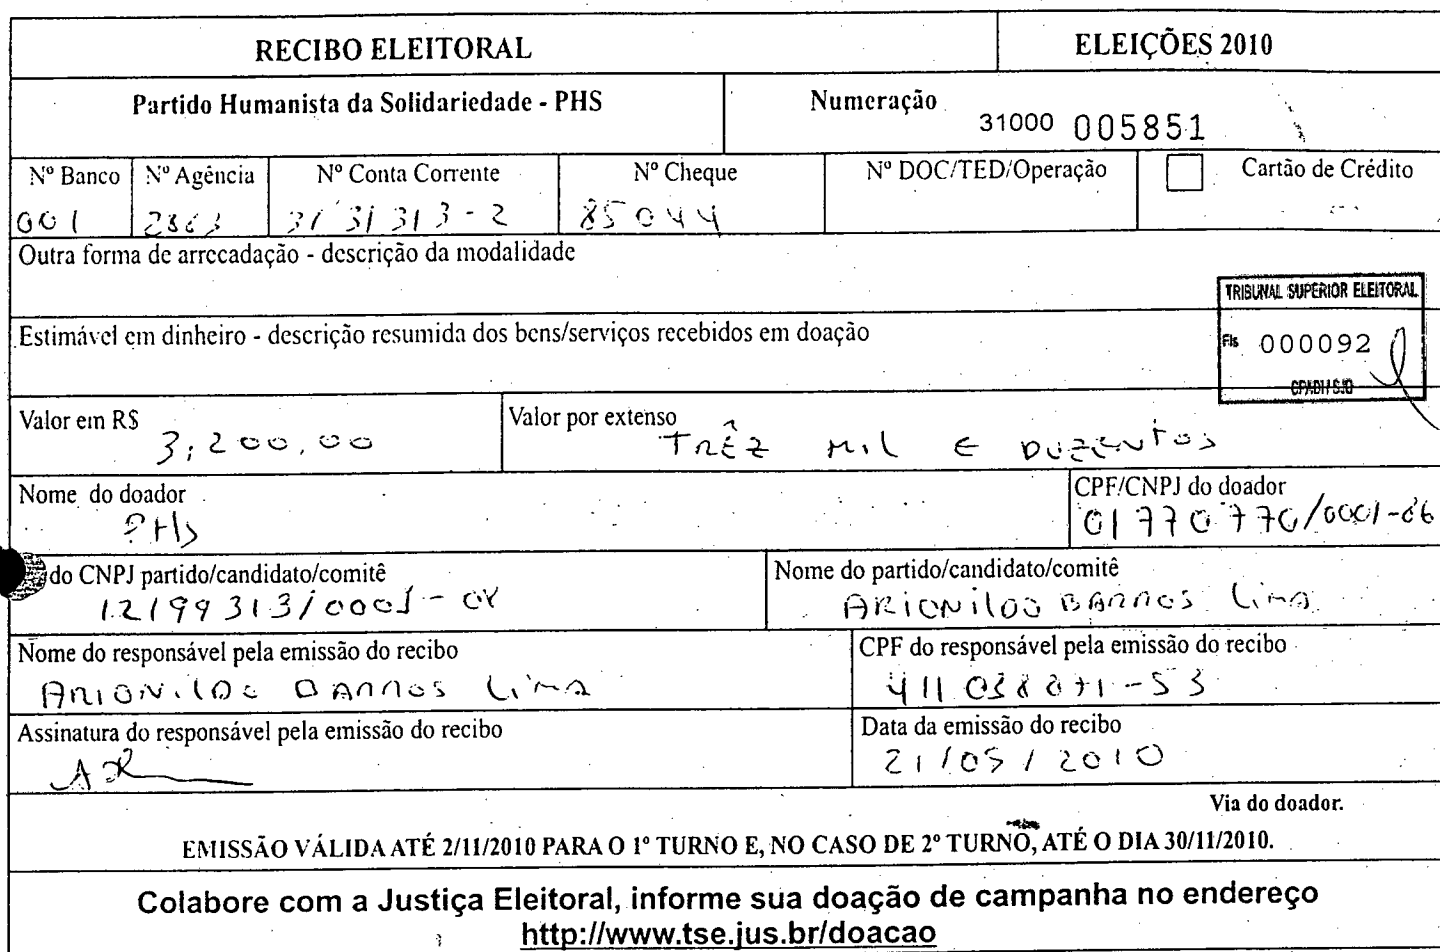 RECIBO ELEITORAL
ELEIÇÕES 2010
Partido Humanista da Solidariedade - PHS
Numeração
31000 005851
Nº Banco
Nº Agência
Nº Conta Corrente
Nº Cheque
Nº DOC/TED/Operação
Cartão de Crédito
001
313131 3-2
85044
Outra forma de arrecadação - descrição da modalidade
TRIBUNAL SUPERIOR ELEITORAL
Estimável em dinheiro - descrição resumida dos bens/serviços recebidos em doação
Fls 000092
Valor em R$
3,200,00
Valor por extenso
TRÊZ MIL E DUZENTOS
Nome do doador
PHS
CPF/CNPJ do doador
01770770/0001-
do CNPJ partido/candidato/comitê
12199313/0001-
Nome do partido/candidato/comitê
ARIONILDO BARROS LIMA
Nome do responsável pela emissão do recibo
ARIONILDO BARROS LIMA
CPF do responsável pela emissão do recibo
Assinatura do responsável pela emissão do recibo
Data da emissão do recibo
21/05/2010
Via do doador.
EMISSÃO VÁLIDA ATÉ 2/11/2010 PARA O 1º TURNO E, NO CASO DE 2º TURNO, ATÉ O DIA 30/11/2010.
Colabore com a Justiça Eleitoral, informe sua doação de campanha no endereço
http://www.tse.jus.br/doacao